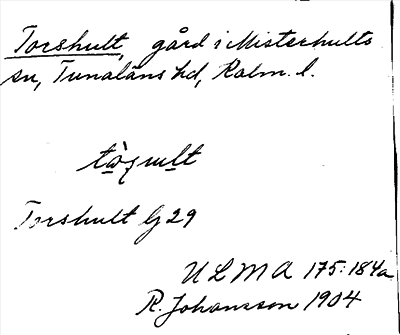 Torshult, gård i Misterhults
sn, Tunaläns hd, Kalm. l.
Torshult Gj 29
ULMA 175:184a
R. Johansson 1904